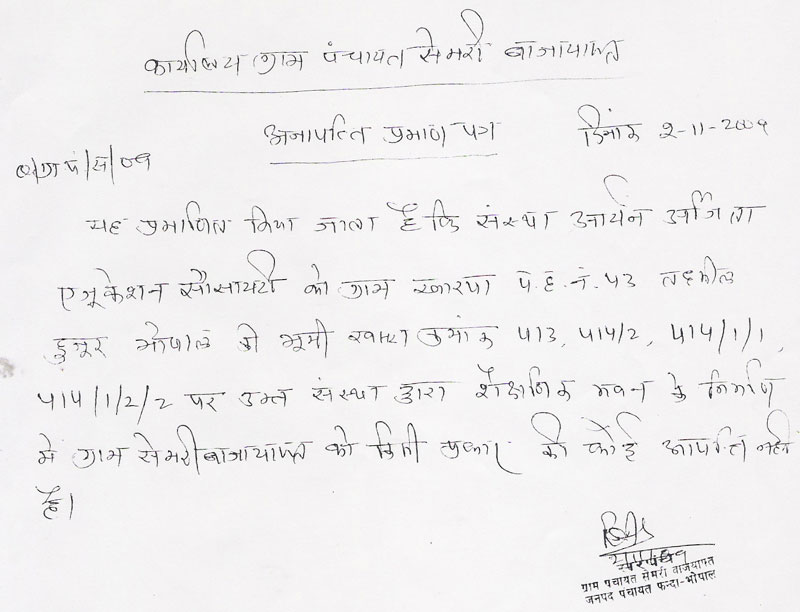 कार्यालय ग्राम पंचायत सेमरी बाजायाफ्त
अनापत्ति प्रमाण पत्र दिनांक 2-11-2009
यह प्रमाणित किया जाता है कि संस्था आर्यन अर्जिता
एजूकेशन सौसायटी को ग्राम खारपा प.ह.नं. ५३ तहसील
हुजूर भोपाल की भूमी खसरा क्रमांक ५१३, ५१५/२, ५१५/१/१,
५१५/१/२/२ पर उक्त संस्था द्वारा शैक्षणिक भवन के निर्माण
मे ग्राम सेमरीबाजायाफ्त को किसी प्रकार की कोई आपत्ति नहीं
है।
सरपंच
ग्राम पंचायत सेमरी वाजयाफ्त
जनपद पंचायत फन्दा-भोपाल